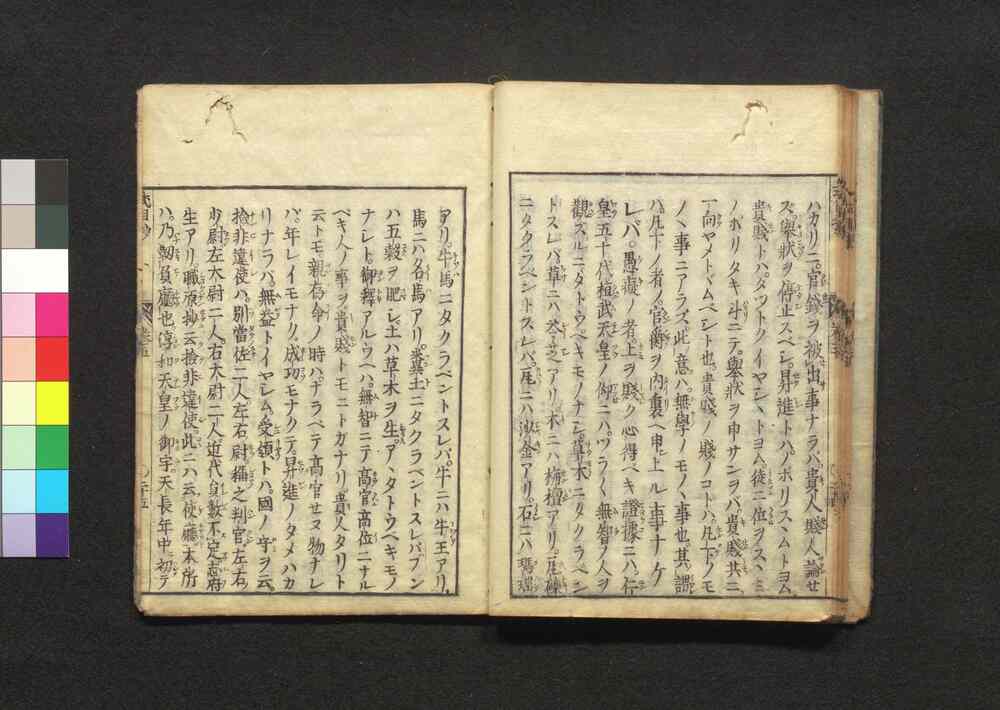 ハカリニ。官錢ヲ被出事ナラバ。貴人賤人論せ
ズ。擧狀ヲ停止スベシ。昇進トハ。ボリスヽムトヨム
貴賤トハ。タツトク イヤシヽトヨム。徒ニ位ヲスヽミ
ノボリタキ斗ニテ。擧狀ヲ申サンヲバ。貴賤共ニ
一向ヤメトヾムベシト也。貴賤ノ賤ノコトハ。凡下ノモ
ノヽ事ニアラズ。此ノ意ハ。無學ノモノヽ事也。其謂
ハ。凡下ノ者ノ。官爵ヲ内裏ヘ申上ル事ナケ
レバ。愚癡ノ者。上ヲ賤ク心得ベキ證據ニハ。仁
皇五十代桓武天皇ノ仰ニハ。ツラ〱無智ノ人ヲ
觀ズルニ。タトウベキモノナシ。草木ニタクラベン
トスレバ。草ニハ 芝アリ。木ニハ栴檀アリ。瓦礫
ニタクラベントスレバ。瓦ニハ 金アリ。石ニハ 瑪瑙
アリ。牛馬ニタクラベントスレバ。牛ニハ牛王アリ。
馬ニハ名馬アリ。糞土ニタクラベントスレバ。フン
ハ五穀ヲ肥シ。土ハ草木ヲ生ズ。アヽタトウベキモノ
ナシト。御釋アルウヘハ。無智ニテ高官高位ニナル
ベキ人ノ事ヲ。貴賤トモニトガナリ。貴人タリト
云トモ。親存命ノ時ハ。ナラベテ高官せヌ物ナレ
バ。年レイモナク。成功モナクテ。昇進ノタメハカ
リナラバ。無益トイヤシム。受領トハ。國ノ守ヲ云。
撿非違使ハ。別當佐二人左右尉 之判官左右
少尉左大尉二人右大尉二人近代員數不定志府
生アリ。職原抄云撿非違使。此ニハ云使廳。本所
ハ。乃靱負廳也。淳和天皇ノ御宇。天長年中。初テ